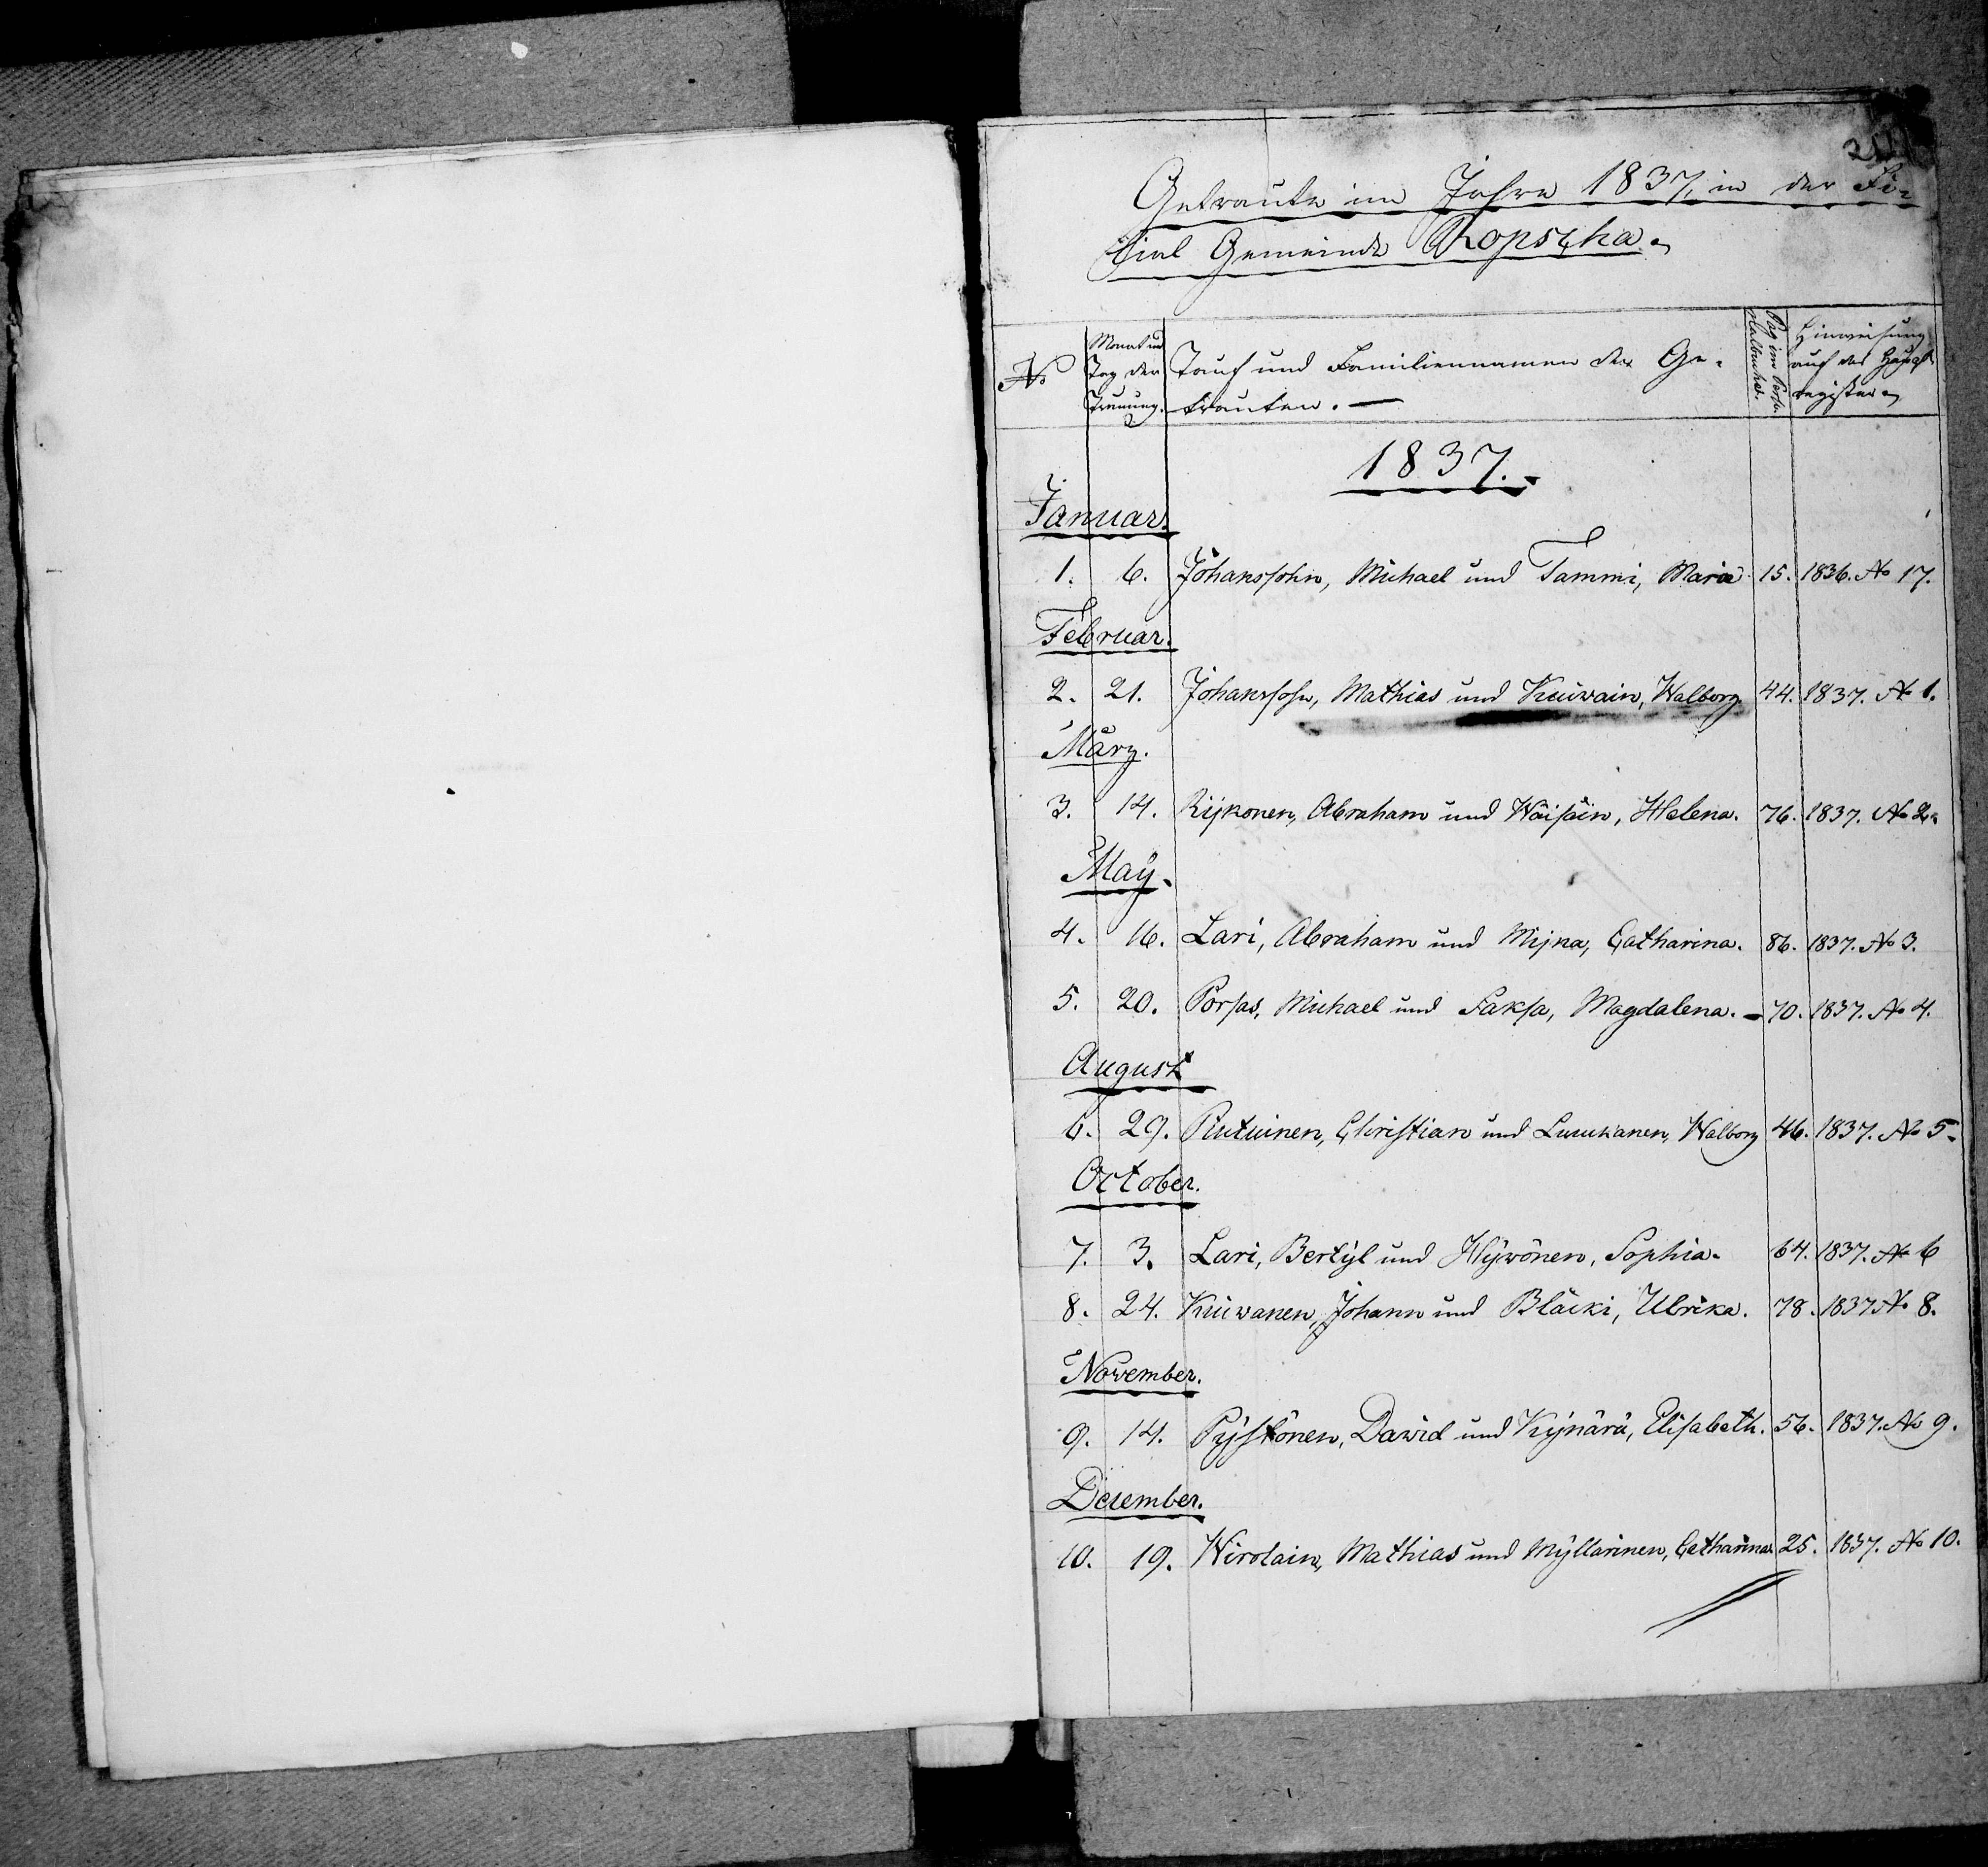 Getraute im Jahre 1837, in der Fi-
lial Gemeinde Ropscha.
№ Monat und Tag der Trauung. Tauf und Familiennamen der Ge- Pag im Perso- Hinweisung
trauten. — nalbuche. auf das Haupt-
register
1837.
Januar.
1. 6. Johanssohn, Michael und Tammi, Maria 15. 1836. № 17.
Februar.
2. 21. Johanssohn, Mathias und Kuiwain, Walborg. 44. 1837. № 1.
März.
3. 14. Rijkonen, Abraham und Wäisäin, Helena. 76. 1837. № 2.
May.
4. 16. Lari, Abraham und Mijna, Catharina. 86. 1837. № 3.
5. 20. Porsas, Michael und Saksa, Magdalena. - 70. 1837. № 4.
August
6. 29. Putuinen, Christian und Luukanen, Walborg 46. 1837. № 5.
October.
7. 3. Lari, Bertÿl und Hÿwönen, Sophia. 64. 1837. № 6
8. 24. Kuiwanen, Johann und Bläcki, Ulrika. 78. 1837 № 8.
November.
9. 14. Pÿstönen, Dawid und Kijnärä, Elisabeth. 56. 1837. № 9.
December.
10. 19. Wirolain, Mathias und Mÿllärinen, Catharina. 25. 1837. № 10.